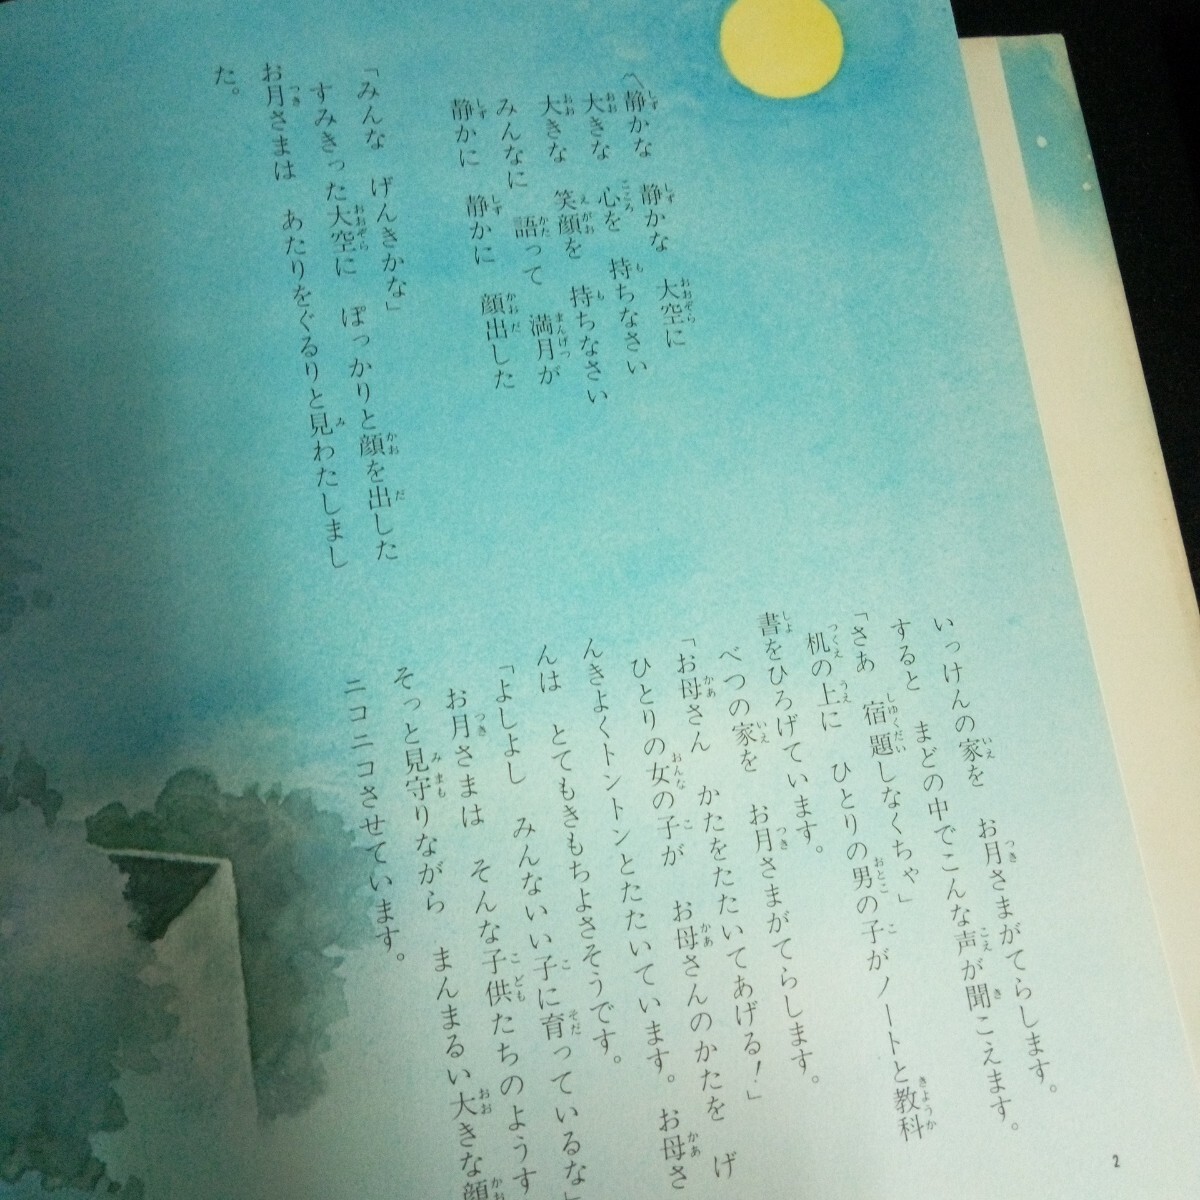 〽静かな　静かな　大空に
大きな　心を　持ちなさい
大きな　笑顔を　持ちなさい
みんなに　語って　満月が
静かに　静かに　顔出した
「みんな　げんきかな」
すみきった大空に　ぽっかりと顔を出した
お月さまは　あたりをぐるりと見わたしまし
た。
いっけんの家を　お月さまがてらします。
すると　まどの中でこんな声が聞こえます。
「さあ　宿題しなくちゃ」
机の上に　ひとりの男の子がノートと教科
書をひろげています。
べつの家を　お月さまがてらします。
「お母さん　かたをたたいてあげる！」
ひとりの女の子が　お母さんのかたを　げ
んきよくトントンとたたいています。お母さ
んは　とてもきもちよさそうです。
「よしよし　みんないい子に育っているな」
お月さまは　そんな子供たちのようす
そっと見守りながら　まんまるい大きな顔
ニコニコさせています。
2